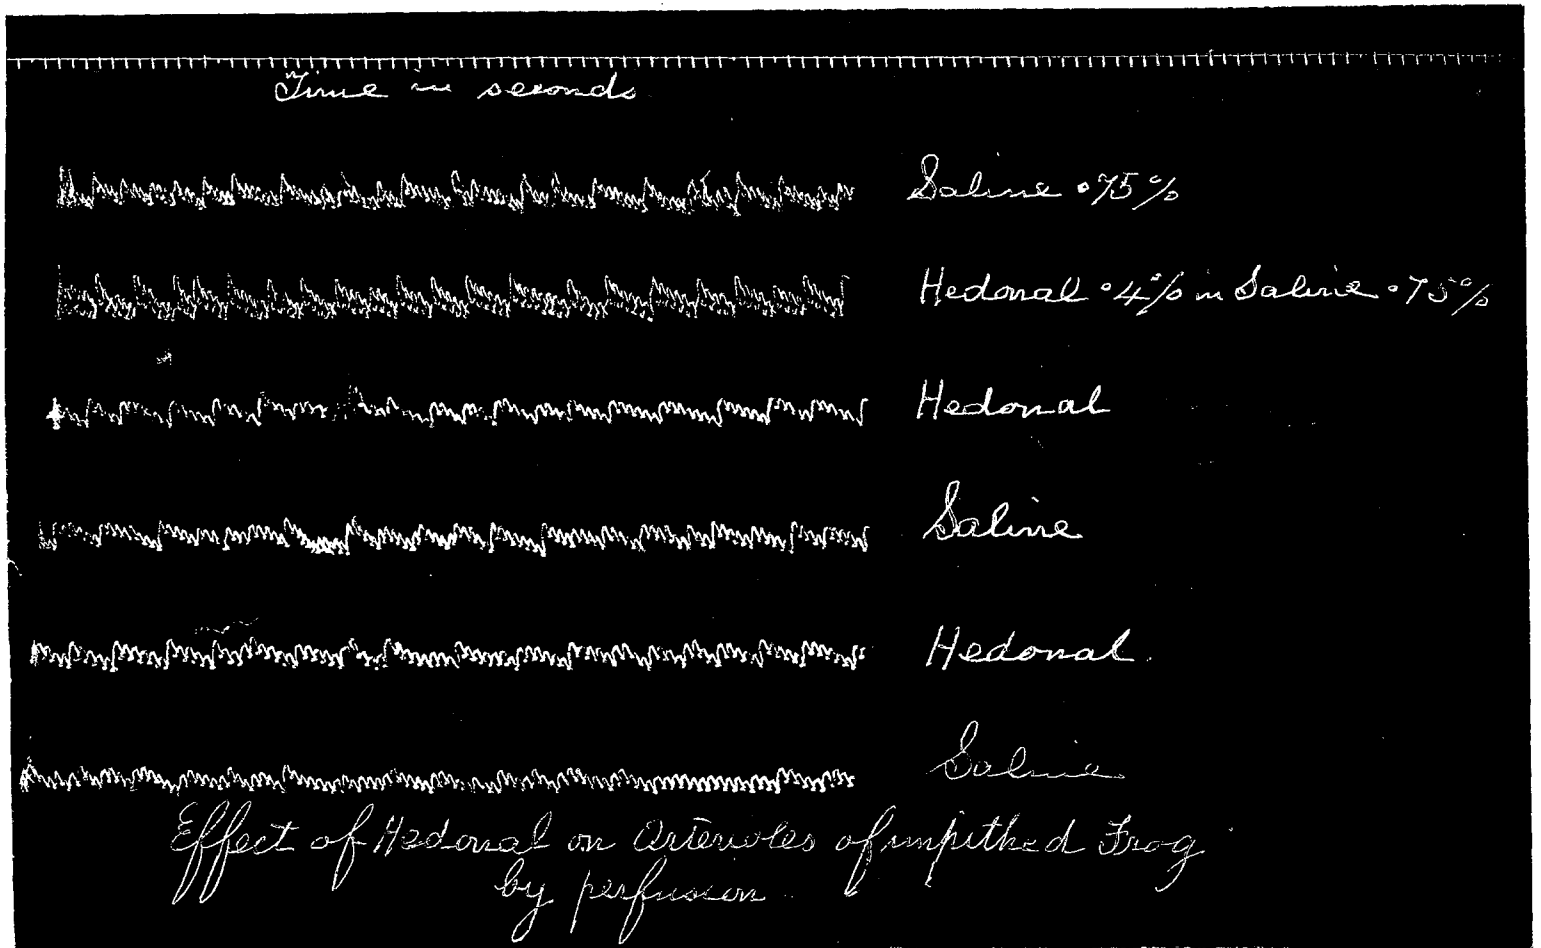 Time in seconds
Saline .75%
Hedonal .4% in Saline .75%
Hedonal
Saline
Hedonal.
Saline
Effect of Hedonal on Arterioles of unpithed Frog
by perfusion